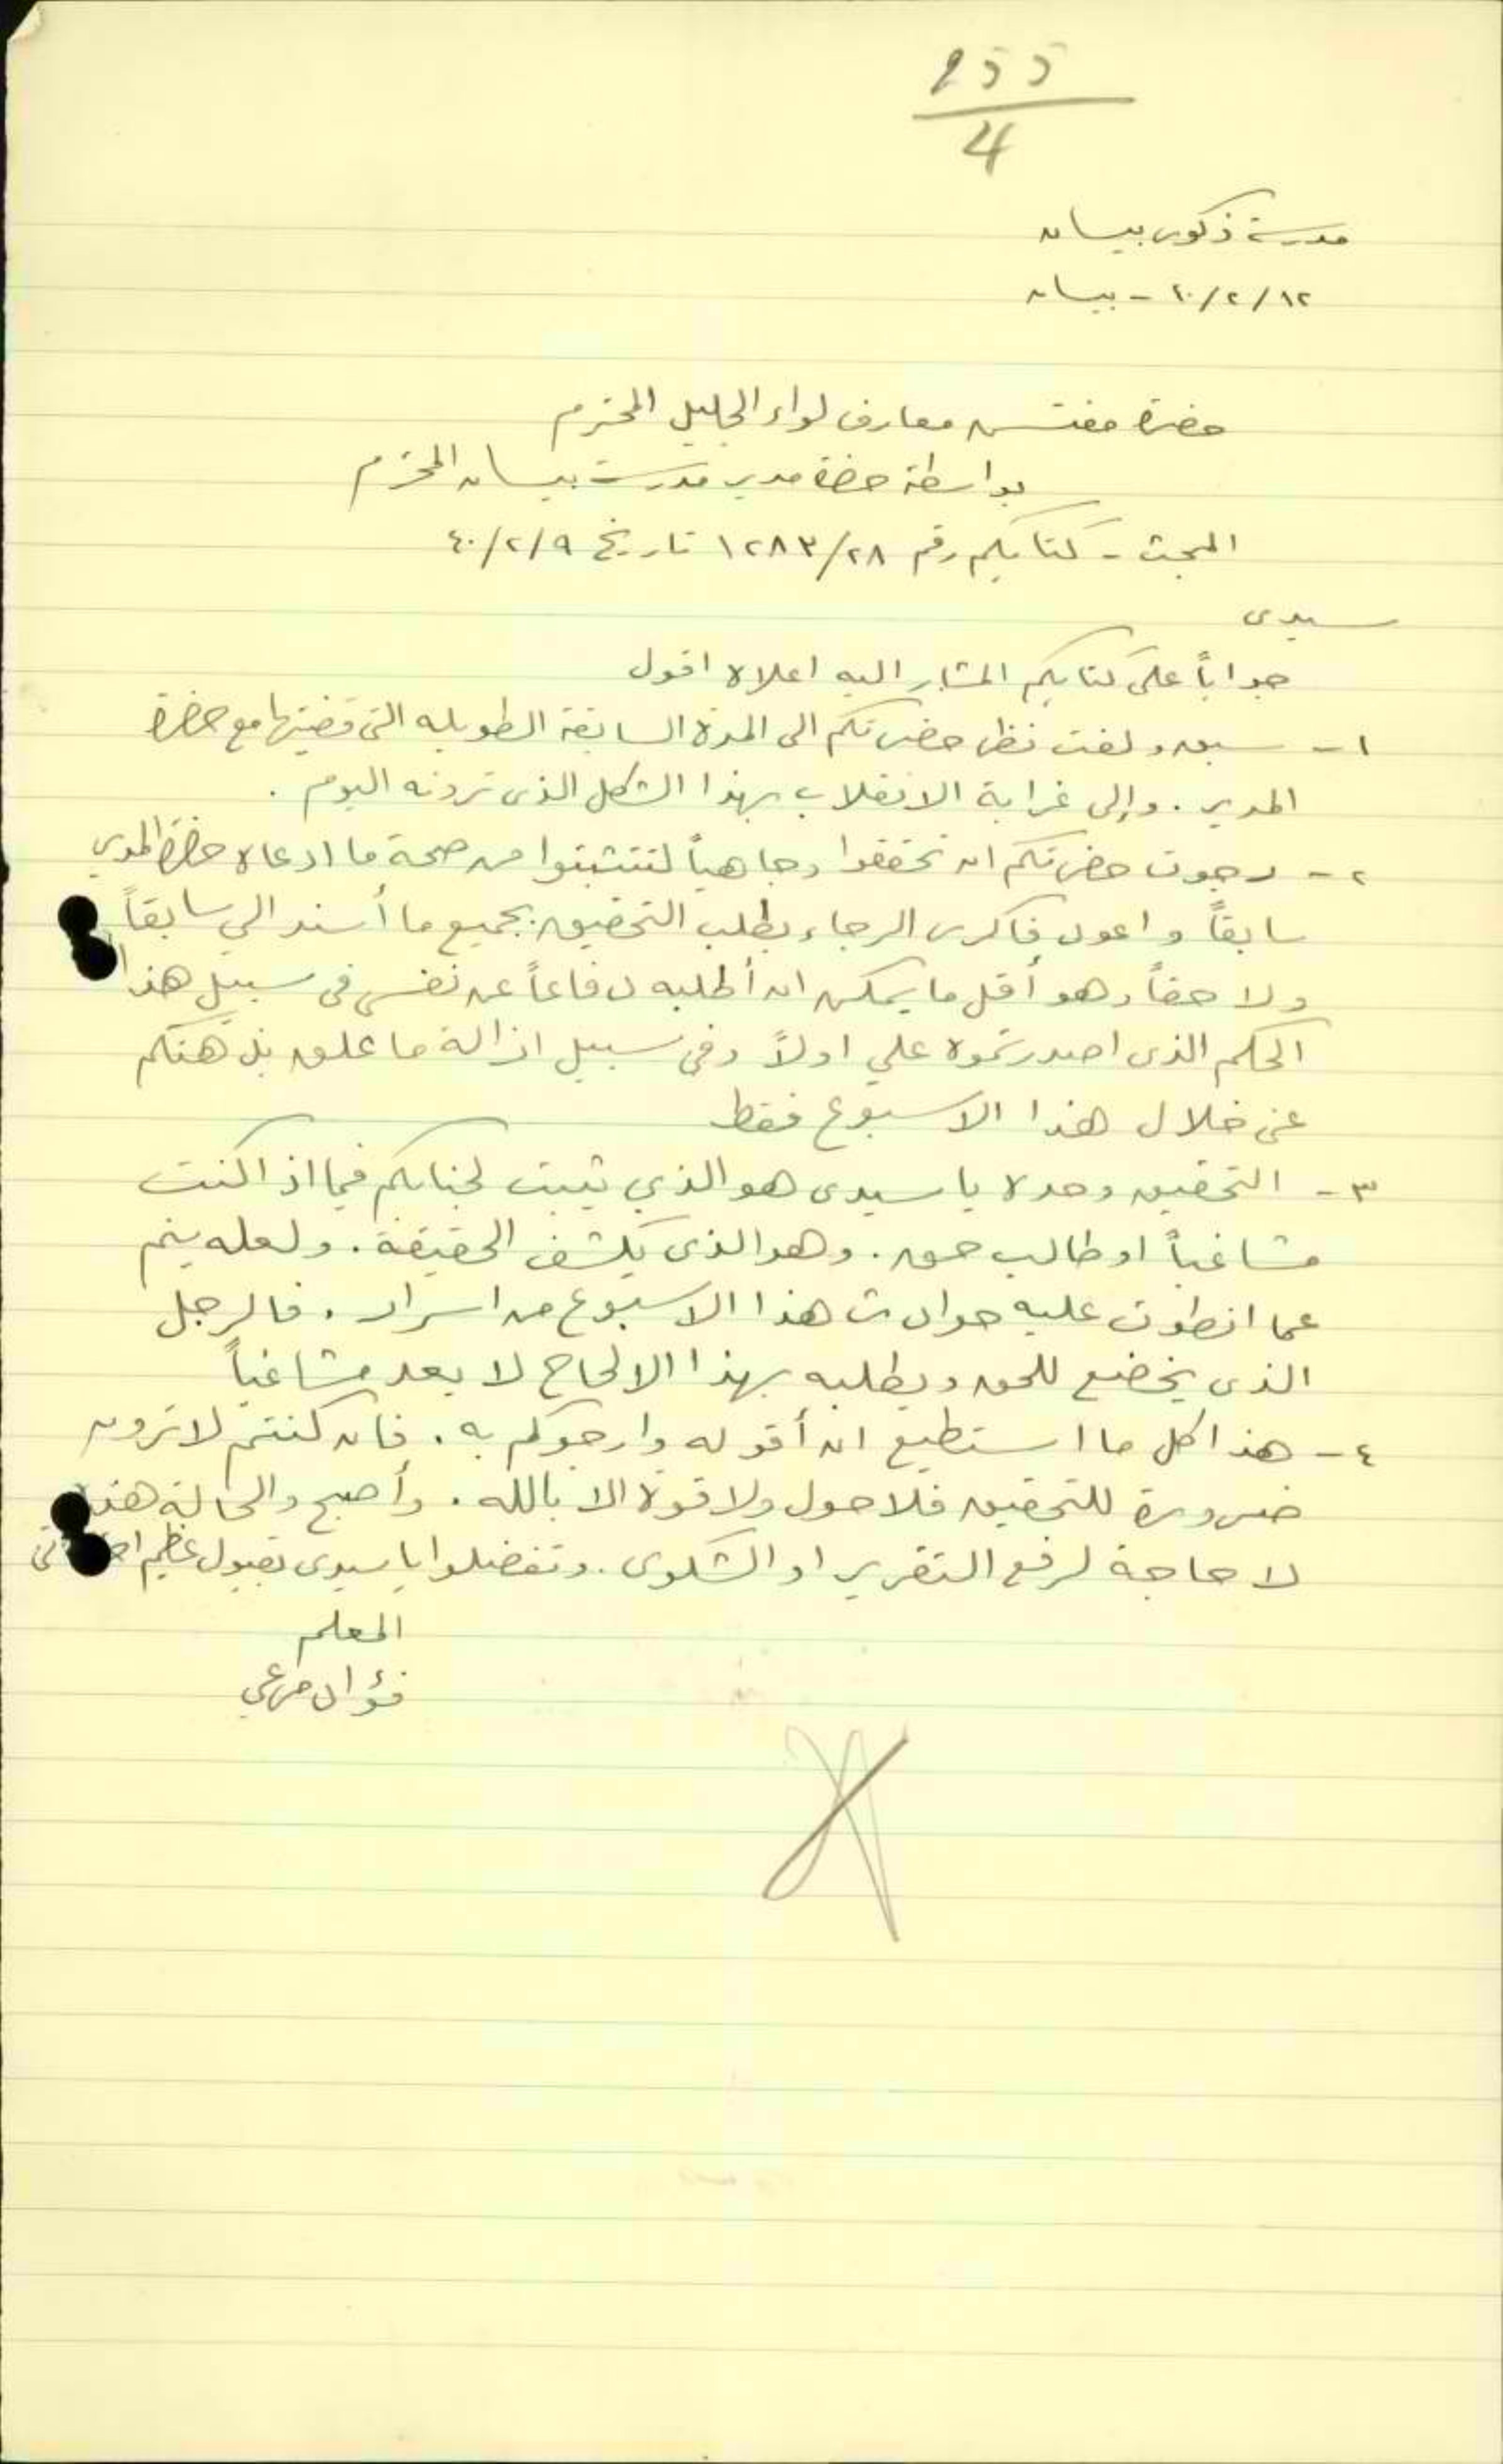 255
4
مدرسة ذكور بيسان
١٢/٢/٤٠ - بيسان
حضرة مفتش معارف لواء الجليل المحترم
بواسطة حضرة مدير مدرسة بيسان المحترم
المبحث - كتابكم رقم ١٢٨٣/٢٨ تاريخ ٤٠/٢/٩
سيدى
جواباً على كتابكم المشار اليه اعلاه اقول
١ - سبق ولفت نظر حضرتكم الى المدة السابقة الطويله التى قضيتها مع حضرة
المدير . وإلى غرابة الانقلاب بهذا الشكل الذى ترونه اليوم .
٢ - رجوت حضرتكم ان تحققوا وجاهياً لتتثبتوا من صحة ما ادعاه حضرة المدير
سابقاً واعود فاكرر الرجاء بطلب التحقيق بجميع ما أسند الي سابقاً
ولا حقاً وهو أقل ما يمكن ان أطلبه دفاعاً عن نفسى فى سبيل هذا
الحكم الذى اصدرتموه علي اولاً وفى سبيل ازالة ما علق بذهنكم
عنى خلال هذا الاسبوع فقط
٣ - التحقيق وحده يا سيدى هو الذي يثبت لجنابكم فيما اذا كنت
مشاغباً او طالب حق . وهو الذى يكشف الحقيقة . ولعله ينم
عما انطوت عليه حوادث هذا الاسبوع من اسرار . فالرجل
الذى يخضع للحق ويطلبه بهذا الالحاح لا يعد مشاغباً
٤ - هذا كل ما استطيع ان أقوله وارجوكم به . فان كنتم لا ترون
ضرورة للتحقيق فلا حول ولا قوة الا بالله . وأصبح والحالة هذه
لا حاجة لرفع التقرير او الشكوى . وتفضلوا يا سيدى بقبول عظيم
المعلم
فؤاد مرعي